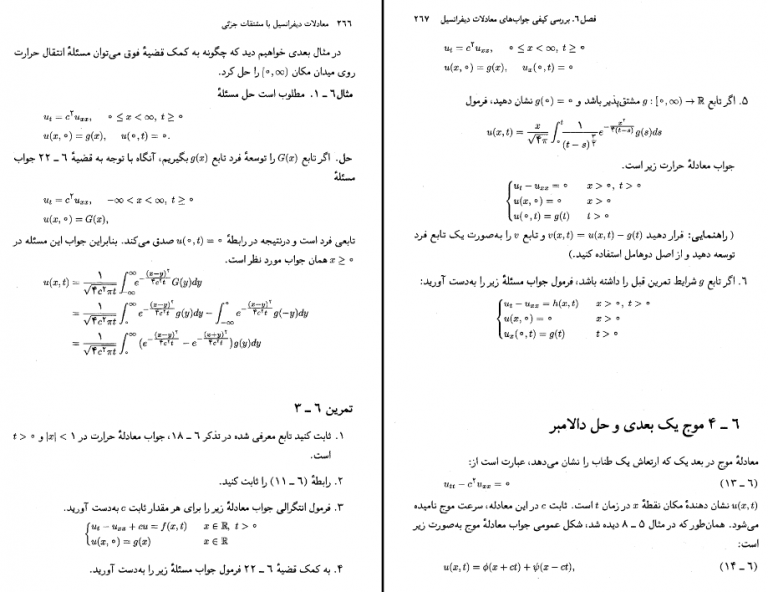 ۲۶۶ معادلات دیفرانسیل با مشتقات جزئی
در مثال بعدی خواهیم دید که چگونه به کمک قضیهٔ فوق می‌توان مسئلهٔ انتقال حرارت
روی میدان مکان (۰,∞] را حل کرد.
مثال ۶ – ۱. مطلوب است حل مسئلهٔ
u_t = c^۲ u_{xx},  ۰ ≤ x < ∞, t ≥ ۰
u(x, ۰) = g(x),  u(۰, t) = ۰.
حل. اگر تابع G(x) را توسعهٔ فرد تابع g(x) بگیریم، آنگاه با توجه به قضیهٔ ۶ – ۲۲ جواب
مسئلهٔ
u_t = c^۲ u_{xx},  −∞ < x < ∞, t ≥ ۰
u(x, ۰) = G(x),
تابعی فرد است و درنتیجه در رابطهٔ u(۰, t) = ۰ صدق می‌کند. بنابراین جواب این مسئله در
x ≥ ۰ همان جواب مورد نظر است.
u(x, t) = ۱/√(۴c^۲πt) ∫_{−∞}^{∞} e^{−(x−y)^۲/۴c^۲t} G(y)dy
= ۱/√(۴c^۲πt) ∫_۰^∞ e^{−(x−y)^۲/۴c^۲t} g(y)dy − ∫_{−∞}^۰ e^{−(x−y)^۲/۴c^۲t} g(−y)dy
= ۱/√(۴c^۲πt) ∫_۰^∞ (e^{−(x−y)^۲/۴c^۲t} − e^{−(x+y)^۲/۴c^۲t})g(y)dy
تمرین ۶ – ۳
۱. ثابت کنید تابع معرفی شده در تذکر ۶ – ۱۸، جواب معادلهٔ حرارت در |x| < ۱ و t > ۰
است.
۲. رابطهٔ (۶ – ۱۱) را ثابت کنید.
۳. فرمول انتگرالی جواب معادلهٔ زیر را برای هر مقدار ثابت c به‌دست آورید.
u_t − u_{xx} + cu = f(x, t)  x ∈ ℝ, t > ۰
u(x, ۰) = g(x)  x ∈ ℝ
۴. به کمک قضیهٔ ۶ – ۲۲ فرمول جواب مسئلهٔ زیر را به‌دست آورید.
فصل ۶. بررسی کیفی جواب‌های معادلات دیفرانسیل ۲۶۷
u_t = c^۲ u_{xx},  ۰ ≤ x < ∞, t ≥ ۰
u(x, ۰) = g(x),  u_x(۰, t) = ۰.
۵. اگر تابع g : [۰, ∞) → ℝ مشتق‌پذیر باشد و g(۰) = ۰ نشان دهید، فرمول
u(x, t) = x/√(۴π) ∫_۰^t ۱/(t − s)^{۳/۲} e^{−x^۲/۴(t−s)} g(s)ds
جواب معادلهٔ حرارت زیر است.
u_t − u_{xx} = ۰  x > ۰, t > ۰
u(x, ۰) = ۰  x > ۰
u(۰, t) = g(t)  t > ۰
( راهنمایی: قرار دهید v(x, t) = u(x, t) − g(t) و تابع v را به‌صورت یک تابع فرد
توسعه دهید و از اصل دوهامل استفاده کنید.)
۶. اگر تابع g شرایط تمرین قبل را داشته باشد، فرمول جواب مسئلهٔ زیر را به‌دست آورید:
u_t − u_{xx} = h(x, t)  x > ۰, t > ۰
u(x, ۰) = ۰  x > ۰
u_x(۰, t) = g(t)  t > ۰
۶ – ۴ موج یک بعدی و حل دالامبر
معادلهٔ موج در بعد یک که ارتعاش یک طناب را نشان می‌دهد، عبارت است از:
u_{tt} − c^۲ u_{xx} = ۰  (۶ – ۱۳)
u(x, t) نشان دهندهٔ مکان نقطهٔ x در زمان t است. ثابت c در این معادله، سرعت موج نامیده
می‌شود. همان‌طور که در مثال ۵ – ۸ دیده شد، شکل عمومی جواب معادلهٔ موج به‌صورت زیر
است:
u(x, t) = ϕ(x + ct) + ψ(x − ct),  (۶ – ۱۴)